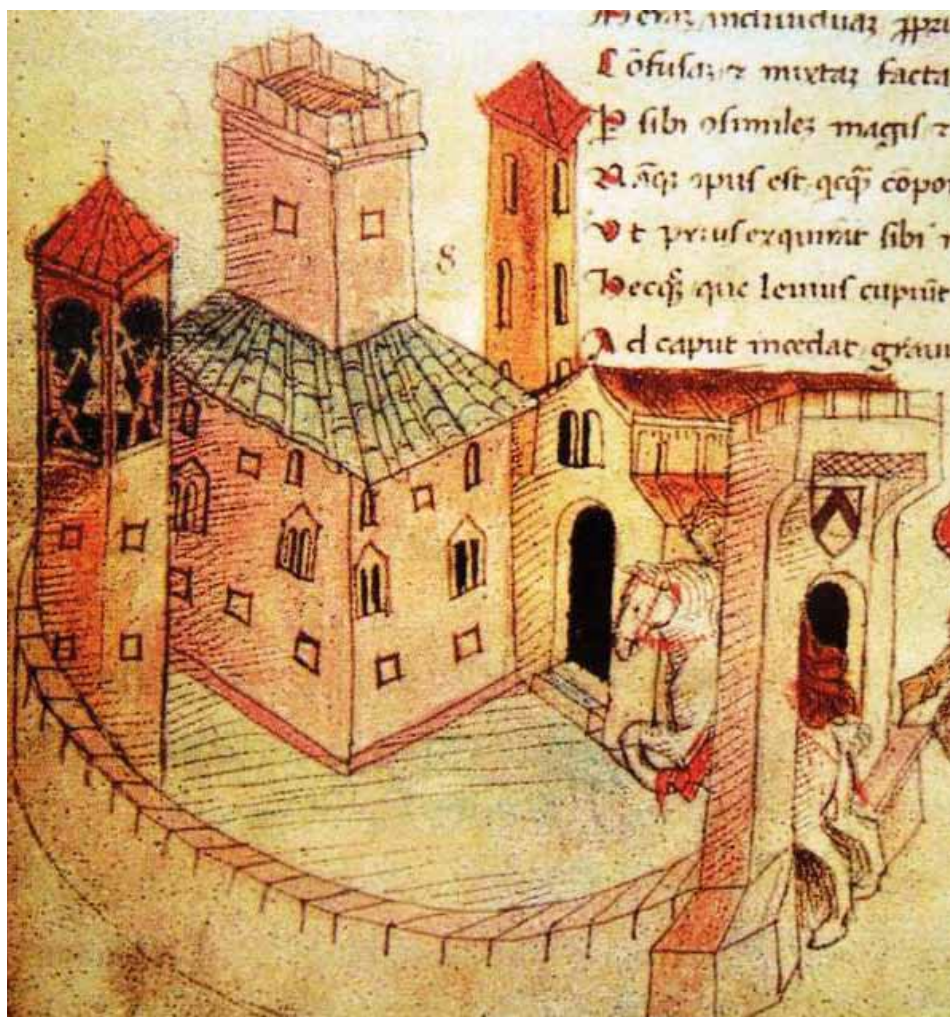 indiuiduas
Cōfusas ⁊ mixtas facta
sibi ɔsimiles magis
opus est qcq̄ cōpo
Vt prius exquirat sibi
8
hecqꝫ que lenius cupiūt
Ad caput incedat grauiu